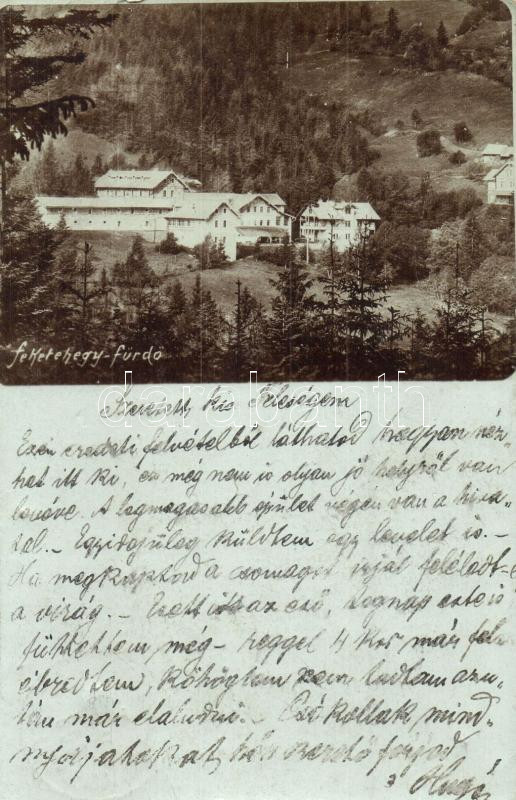 feketehegy-fürdő
darabanth
Szeretett kis Feleségem
Ezen eredeti felvételből láthatod hogyan néz-
het itt ki, ez még nem is olyan jó helyről van
levéve. A legmagasabb épület végén van a hiva-
tal. - Egyidejűleg küldtem egy levelet is. -
Ha megkaptad a csomagot írjál feléledt-e
a virág. - Esett itt az eső, tegnap este is
fűthettem még - reggel 4 kor már fel
ébredtem, köhögtem nem tudtam azu-
tán már elaludni. - Csókollak mind-
nyájatokat, hőn szerető férjed